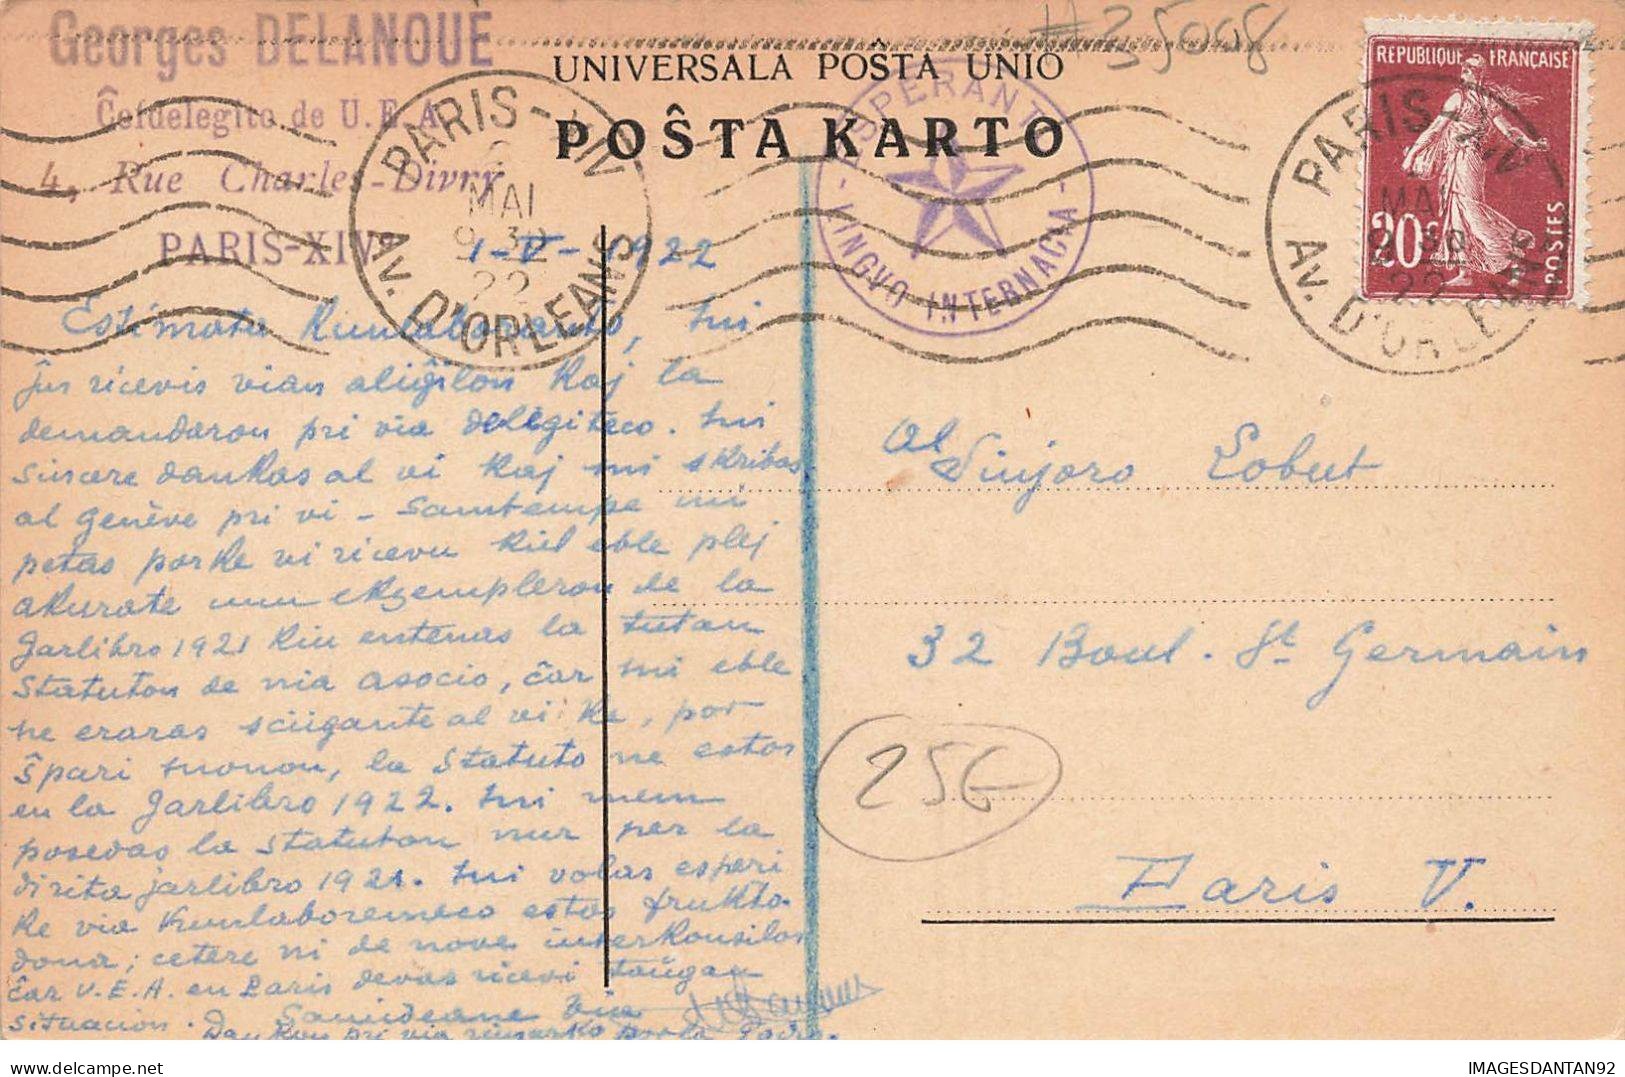 Georges DELANOUE
Ĉefdelegito de U.E.A.
4, Rue Charles-Divry
PARIS-XIVe
#35008
UNIVERSALA POŜTA UNIO
POŜTA KARTO
ESPERANTO
LINGVO INTERNACIA
PARIS-XIV
MAI
9 30
22
Av. D'ORLEANS
RÉPUBLIQUE FRANÇAISE
20c
POSTES
PARIS-XIV
MAI
9 30
22
Av. D'ORLEANS
1-V-1922
Estimata Kunlaboranto, mi
ĵus ricevis vian aliĝilon kaj la
demandaron pri via delegiteco. Mi
sincere dankas al vi kaj mi skribas
al Genève pri vi - Samtempe mi
petas por ke vi ricevu kiel eble plej
akurate unu ekzempleron de la
Jarlibro 1921 kiu entenas la tutan
Statuton de nia asocio, ĉar mi eble
ne eraras sciigante al vi ke, por
ŝpari monon, la Statuto ne estos
en la Jarlibro 1922. Mi mem
posedas la statuton nur per la
dirita jarlibro 1921. Mi volas esperi
ke via kunlaboremeco estos frukto-
dona; cetere ni de nove interkonsilos
ĉar U.E.A. en Paris devas ricevi taŭgan
situacion. Samideane via
Dankon pri via rimarko por la
Al
Sinjoro Lobut
32 Boul. St Germain
25€
Paris V.
IMAGESDANTAN92